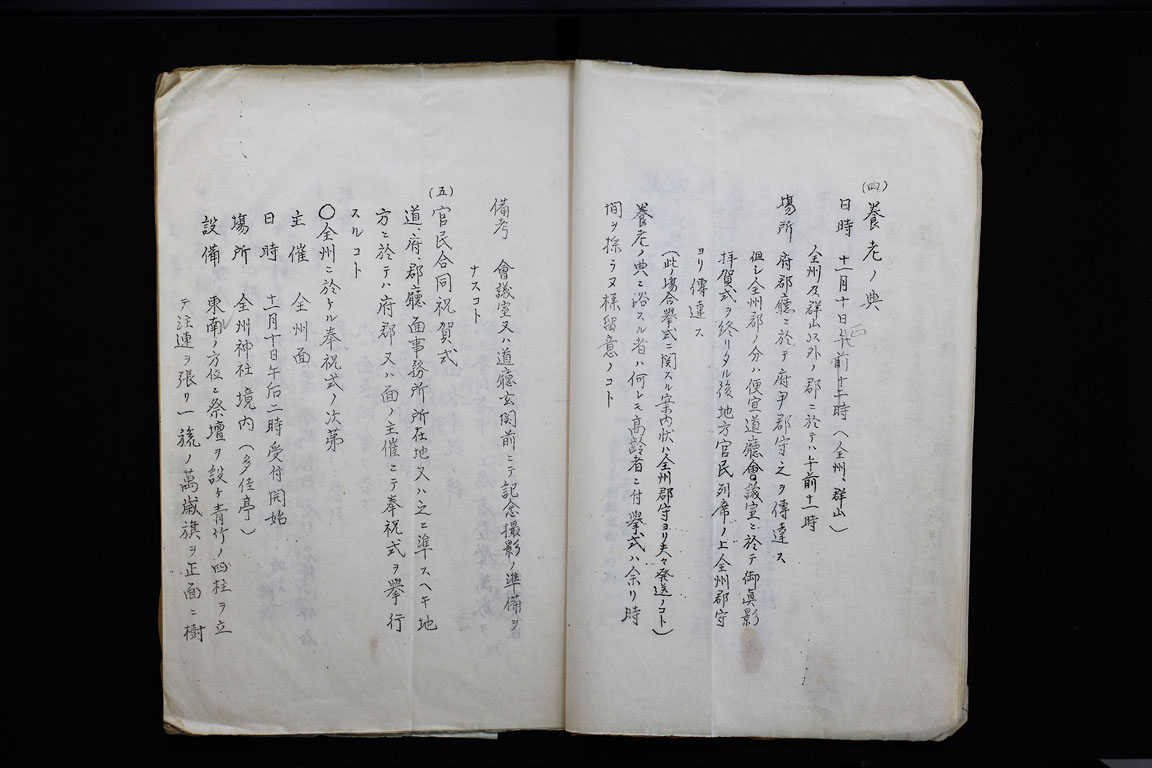 (四)養老ノ典
日時 十一月十日午前十一時(全州、群山)
全州及群山以外ノ郡ニ於テハ午前十一時
場所 府郡廳ニ於テ府尹郡守之ヲ傳達ス
但シ全州郡ノ分ハ便宜道廳會議室ニ於テ御眞影
拝賀式ヲ終リタル後地方官民列席ノ上全州郡守
ヨリ傳達ス
(此ノ場合擧式ニ関スル案内状ハ全州郡守ヨリ夫々発送ノコト)
養老ノ典ニ浴スル者ハ何レモ高齢者ニ付擧式ハ余リ時
間ヲ採ラヌ様留意ノコト
備考 會議室又ハ道廳玄関前ニテ記念撮影ノ準備ヲ
ナスコト
(五)官民合同祝賀式
道、府、郡廳面事務所所在地又ハ之ニ準スヘキ地
方ニ於テハ府郡又ハ面ノ主催ニテ奉祝式ヲ擧行
スルコト
〇全州ニ於ケル奉祝式ノ次第
主催 全州面
日時 十一月十日午后二時受付開始
場所 全州神社境内(多佳亭)
設備 東南ノ方位ニ祭壇ヲ設ケ青竹ノ四柱ヲ立
テ注連ヲ張リ一旒ノ萬歳旗ヲ正面ニ樹